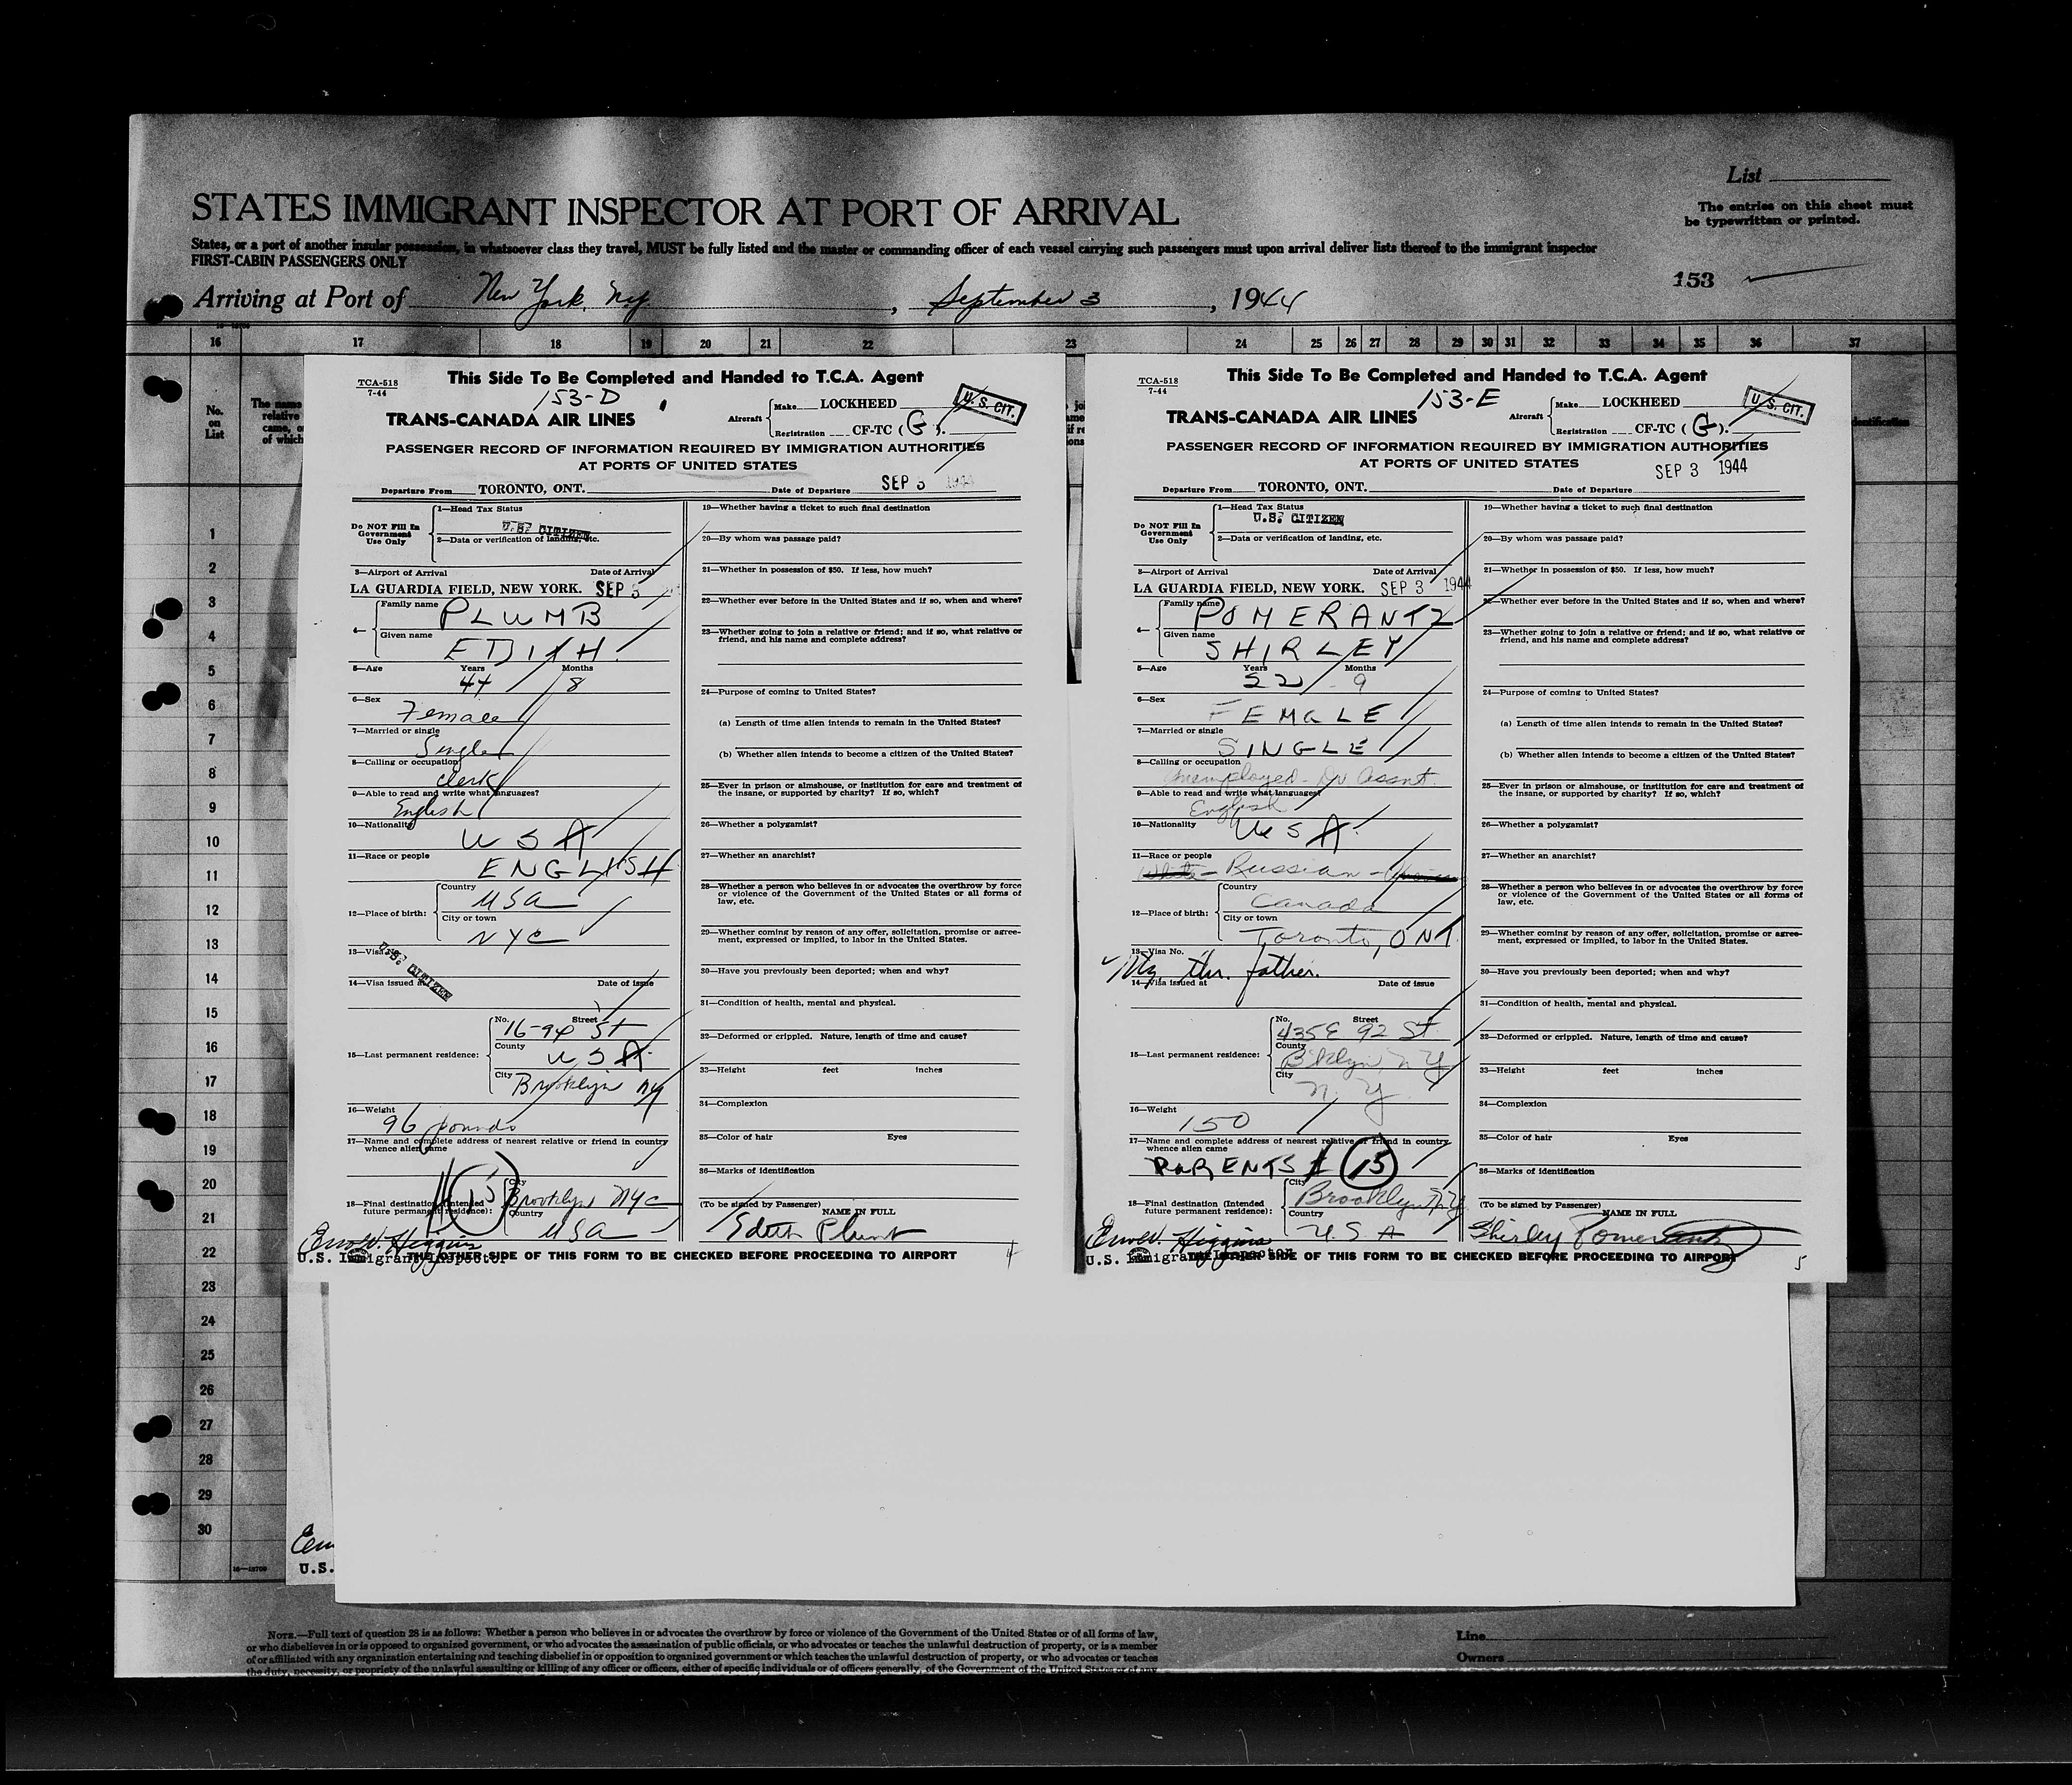 List
STATES IMMIGRANT INSPECTOR AT PORT OF ARRIVAL
The entries on this sheet must
be typewritten or printed.
States, or a port of another insular possession, in whatsoever class they travel, MUST be fully listed and the master or commanding officer of each vessel carrying such passengers must upon arrival deliver lists thereof to the immigrant inspector
FIRST-CABIN PASSENGERS ONLY
153
Arriving at Port of New York, Ny. , September 3 , 1944
16 17 18 19 20 21 22 23 24 25 26 27 28 29 30 31 32 33 34 35 36 37
No.
on
List
The name
relative
came, o
of which
1
2
3
4
5
6
7
8
9
10
11
12
13
14
15
16
17
18
19
20
21
22
23
24
25
26
27
28
29
30
TCA-518
7-44
This Side To Be Completed and Handed to T.C.A. Agent
153-D
TRANS-CANADA AIR LINES
Aircraft Make LOCKHEED
Registration CF-TC (G).
U.S. CIT.
PASSENGER RECORD OF INFORMATION REQUIRED BY IMMIGRATION AUTHORITIES
AT PORTS OF UNITED STATES
SEP 3 1944
Departure From TORONTO, ONT. Date of Departure
Do NOT Fill In
Government
Use Only
1—Head Tax Status
U.S. CITIZEN
2—Data or verification of landing, etc.
3—Airport of Arrival Date of Arrival
LA GUARDIA FIELD, NEW YORK. SEP 3
4— Family name PLUMB
Given name EDITH
5—Age Years Months
44 8
6—Sex
Female
7—Married or single
Single
8—Calling or occupation
Clerk
9—Able to read and write what languages?
English
10—Nationality
USA
11—Race or people
ENGLISH
12—Place of birth: Country
USA
City or town
NYC
13—Visa
U.S. CITIZEN
14—Visa issued at Date of issue
15—Last permanent residence: No. Street
16-94 St
County
USA
City
Brooklyn NY
16—Weight
96 pounds
17—Name and complete address of nearest relative or friend in country
whence alien came
15
18—Final destination (Intended
future permanent residence):
City
Brooklyn NYC
Country
USA
19—Whether having a ticket to such final destination
20—By whom was passage paid?
21—Whether in possession of $50. If less, how much?
22—Whether ever before in the United States and if so, when and where?
23—Whether going to join a relative or friend; and if so, what relative or
friend, and his name and complete address?
24—Purpose of coming to United States?
(a) Length of time alien intends to remain in the United States?
(b) Whether alien intends to become a citizen of the United States?
25—Ever in prison or almshouse, or institution for care and treatment of
the insane, or supported by charity? If so, which?
26—Whether a polygamist?
27—Whether an anarchist?
28—Whether a person who believes in or advocates the overthrow by force
or violence of the Government of the United States or all forms of
law, etc.
29—Whether coming by reason of any offer, solicitation, promise or agree-
ment, expressed or implied, to labor in the United States.
30—Have you previously been deported; when and why?
31—Condition of health, mental and physical.
32—Deformed or crippled. Nature, length of time and cause?
33—Height feet inches
34—Complexion
35—Color of hair Eyes
36—Marks of identification
(To be signed by Passenger)
NAME IN FULL
Edith Plumb
Higgins
U.S. Immigrant Inspector
THE OTHER SIDE OF THIS FORM TO BE CHECKED BEFORE PROCEEDING TO AIRPORT
4
TCA-518
7-44
This Side To Be Completed and Handed to T.C.A. Agent
153-E
TRANS-CANADA AIR LINES
Aircraft Make LOCKHEED
Registration CF-TC (G).
U.S. CIT.
PASSENGER RECORD OF INFORMATION REQUIRED BY IMMIGRATION AUTHORITIES
AT PORTS OF UNITED STATES
SEP 3 1944
Departure From TORONTO, ONT. Date of Departure
Do NOT Fill In
Government
Use Only
1—Head Tax Status
U.S. CITIZEN
2—Data or verification of landing, etc.
3—Airport of Arrival Date of Arrival
LA GUARDIA FIELD, NEW YORK. SEP 3 1944
4— Family name POMERANTZ
Given name SHIRLEY
5—Age Years Months
22 9
6—Sex
FEMALE
7—Married or single
SINGLE
8—Calling or occupation
Unemployed - Dr Assnt.
9—Able to read and write what languages?
English
10—Nationality
USA
11—Race or people
Russian
12—Place of birth: Country
Canada
City or town
Toronto, ONT
13—Visa No.
thr. father.
14—Visa issued at Date of issue
15—Last permanent residence: No. Street
435 E 92 St
County
Bklyn, NY
City
N.Y
16—Weight
150
17—Name and complete address of nearest relative or friend in country
whence alien came
PARENTS 15
18—Final destination (Intended
future permanent residence):
City
Brooklyn N.Y
Country
U.S.A
19—Whether having a ticket to such final destination
20—By whom was passage paid?
21—Whether in possession of $50. If less, how much?
22—Whether ever before in the United States and if so, when and where?
23—Whether going to join a relative or friend; and if so, what relative or
friend, and his name and complete address?
24—Purpose of coming to United States?
(a) Length of time alien intends to remain in the United States?
(b) Whether alien intends to become a citizen of the United States?
25—Ever in prison or almshouse, or institution for care and treatment of
the insane, or supported by charity? If so, which?
26—Whether a polygamist?
27—Whether an anarchist?
28—Whether a person who believes in or advocates the overthrow by force
or violence of the Government of the United States or all forms of
law, etc.
29—Whether coming by reason of any offer, solicitation, promise or agree-
ment, expressed or implied, to labor in the United States.
30—Have you previously been deported; when and why?
31—Condition of health, mental and physical.
32—Deformed or crippled. Nature, length of time and cause?
33—Height feet inches
34—Complexion
35—Color of hair Eyes
36—Marks of identification
(To be signed by Passenger)
NAME IN FULL
Shirley Pomerantz
Higgins
U.S. Immigrant Inspector
THE OTHER SIDE OF THIS FORM TO BE CHECKED BEFORE PROCEEDING TO AIRPORT
5
U.S.
NOTE.—Full text of question 28 is as follows: Whether a person who believes in or advocates the overthrow by force or violence of the Government of the United States or of all forms of law,
or who disbelieves in or is opposed to organized government, or who advocates the assassination of public officials, or who advocates or teaches the unlawful destruction of property, or is a member
of or affiliated with any organization entertaining and teaching disbelief in or opposition to organized government or which teaches the unlawful destruction of property, or who advocates or teaches
the duty, necessity, or propriety of the unlawful assaulting or killing of any officer or officers, either of specific individuals or of officers generally, of the Government of the United States or of any
Line
Owners